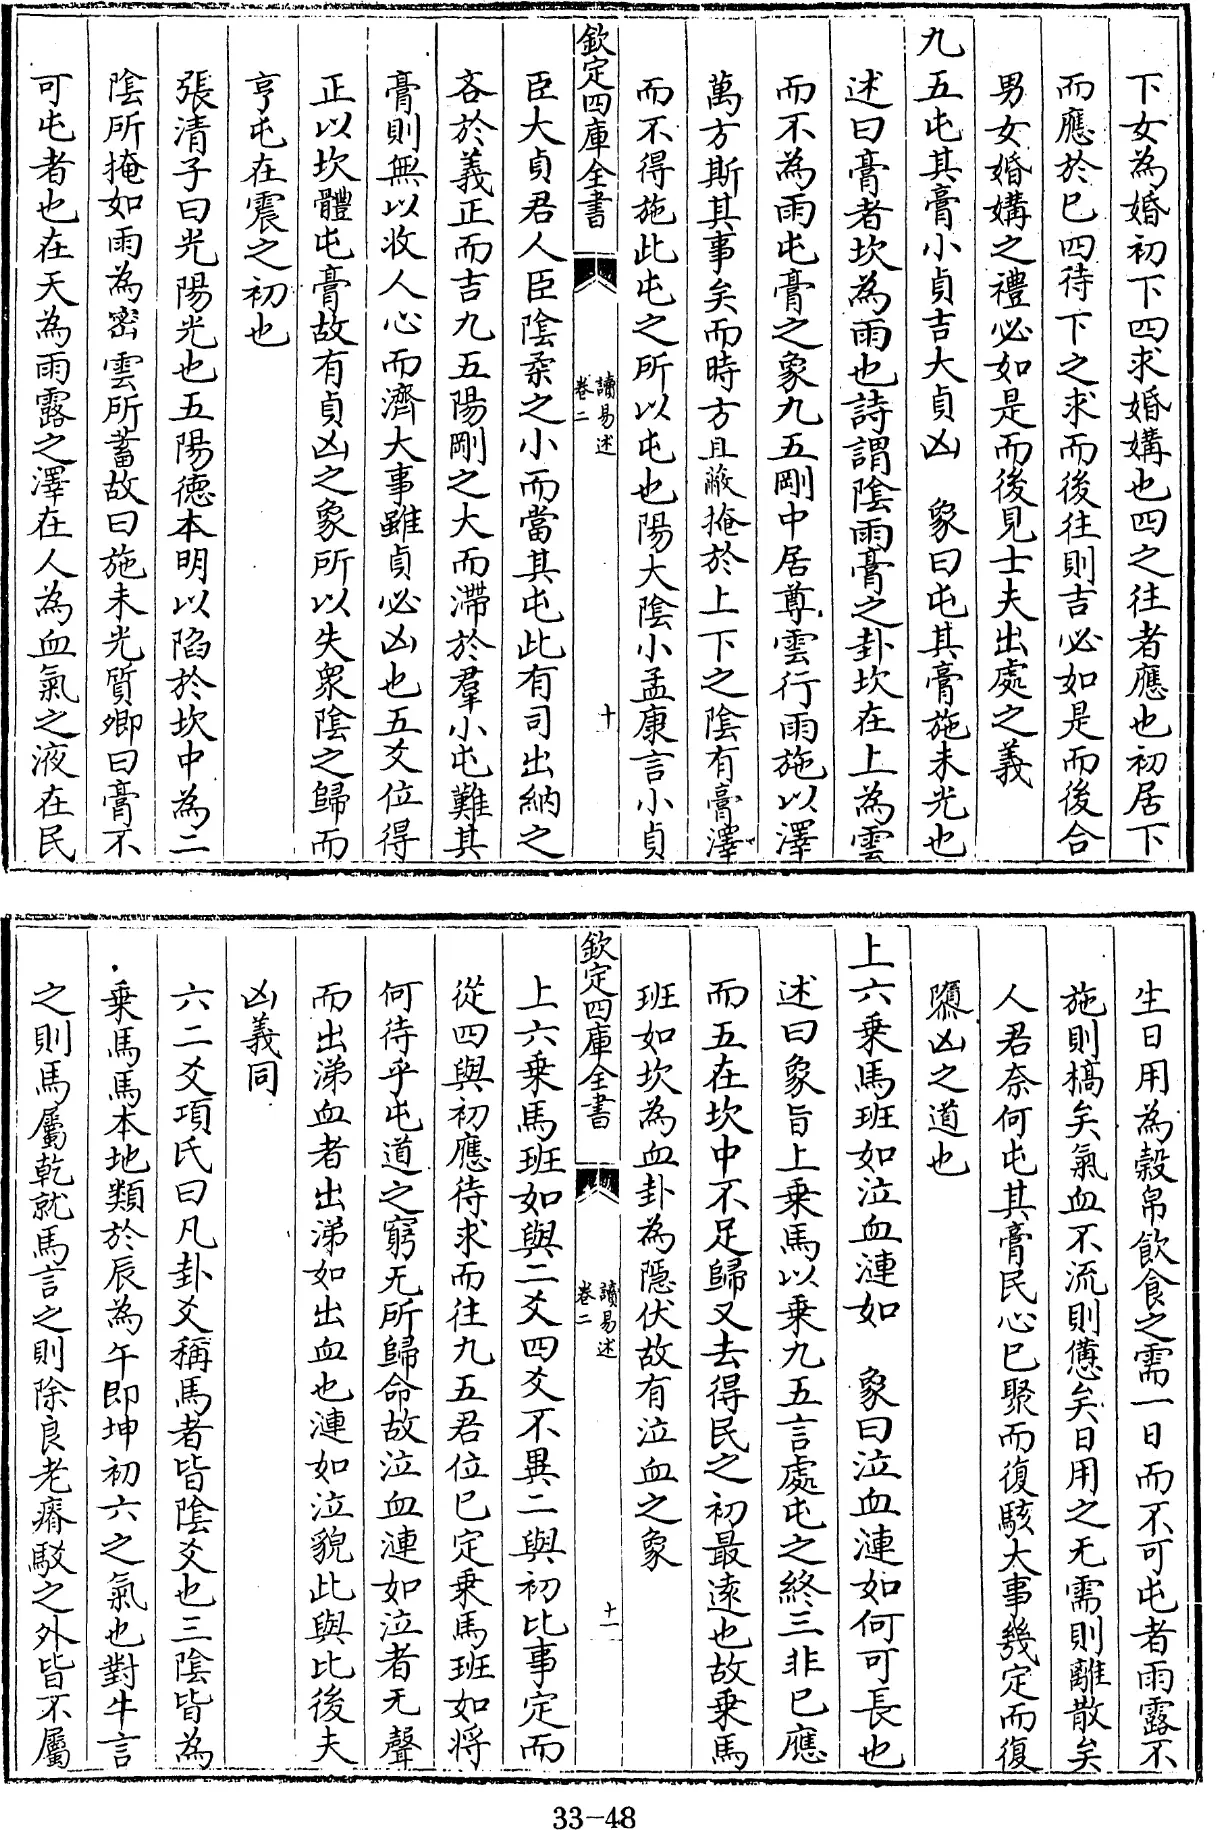 下女為婚初下四求婚媾也四之往者應也初居下
而應於已四待下之求而後往則吉必如是而後合
男女婚媾之禮必如是而後見士夫出處之義
九五屯其膏小貞吉大貞凶 象曰屯其膏施未光也
述曰膏者坎為雨也詩謂陰雨膏之卦坎在上為雲
而不為雨屯膏之象九五剛中居尊雲行雨施以澤
萬方斯其事矣而時方且蔽掩於上下之陰有膏澤
而不得施此屯之所以屯也陽大陰小孟康言小貞
欽定四庫全書 讀易述 卷二 十
臣大貞君人臣陰柔之小而當其屯此有司出納之
吝於義正而吉九五陽剛之大而滯於羣小屯難其
膏則無以收人心而濟大事雖貞必凶也五爻位得
正以坎體屯膏故有貞凶之象所以失衆陰之歸而
亨屯在震之初也
張清子曰光陽光也五陽德本明以陷於坎中為二
陰所掩如雨為密雲所蓄故曰施未光質卿曰膏不
可屯者也在天為雨露之澤在人為血氣之液在民
生日用為穀帛飲食之需一日而不可屯者雨露不
施則槁矣氣血不流則憊矣日用之无需則離散矣
人君奈何屯其膏民心巳聚而復駭大事幾定而復
隳凶之道也
上六乗馬班如泣血漣如 象曰泣血漣如何可長也
述曰象旨上乗馬以乗九五言處屯之終三非巳應
而五在坎中不足歸又去得民之初最逺也故乗馬
班如坎為血卦為隱伏故有泣血之象
欽定四庫全書 讀易述 卷二 十一
上六乗馬班如與二爻四爻不異二與初比事定而
從四與初應待求而往九五君位巳定乗馬班如將
何待乎屯道之窮无所歸命故泣血漣如泣者无聲
而出涕血者出涕如出血也漣如泣貌此與比後夫
凶義同
六二爻項氏曰凡卦爻稱馬者皆陰爻也三陰皆為
乗馬馬本地類於辰為午即坤初六之氣也對牛言
之則馬屬乾就馬言之則除良老瘠駁之外皆不屬
33-48